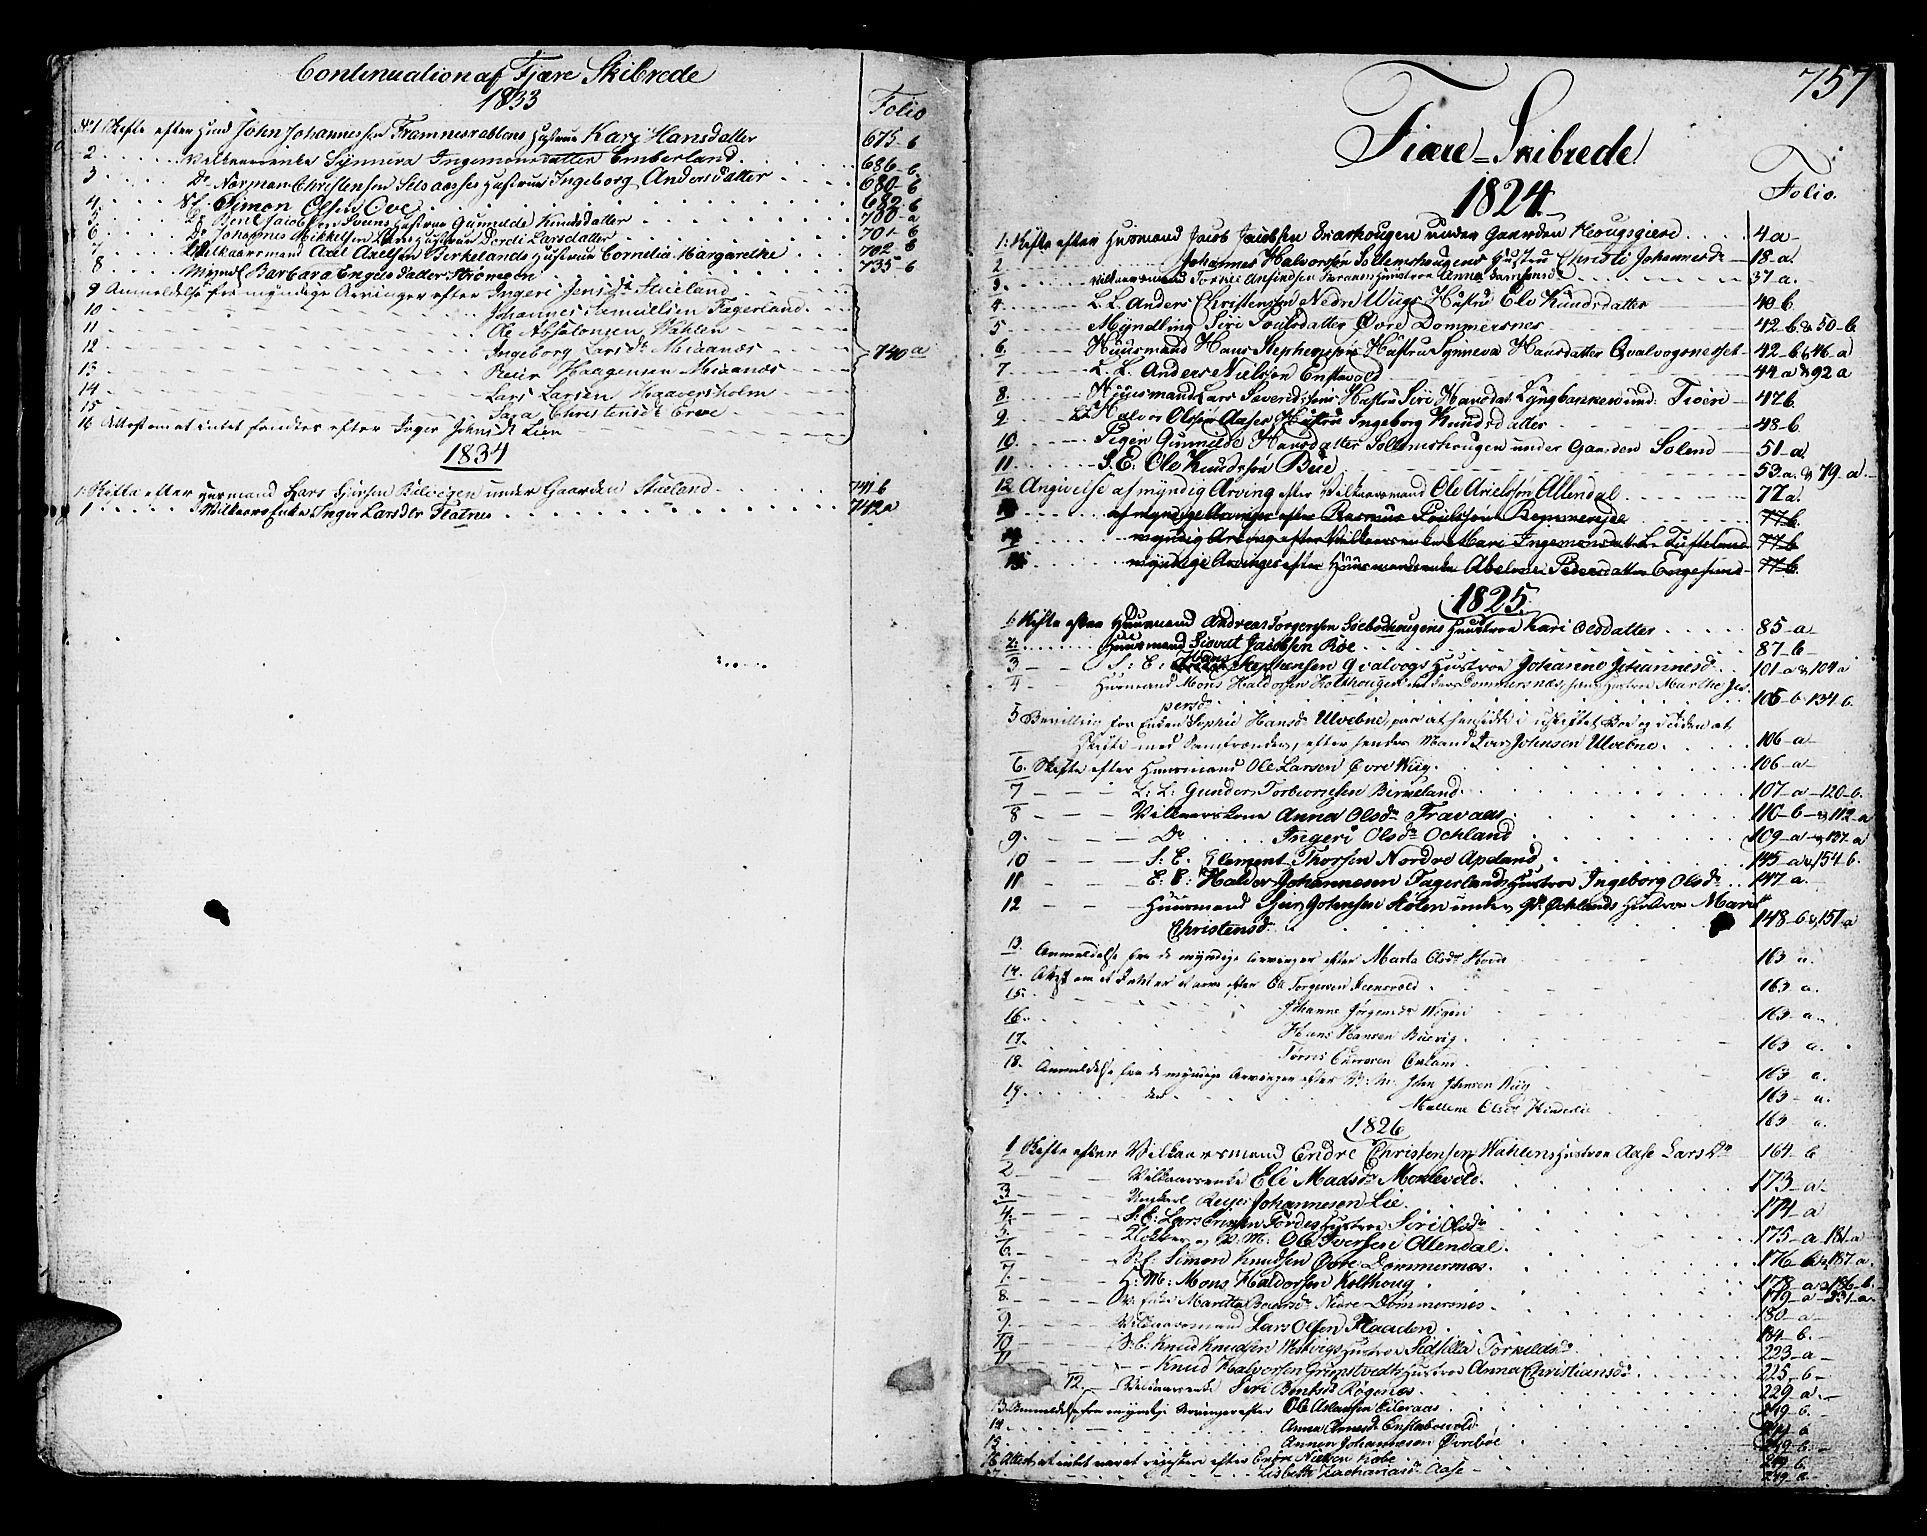 Continuation af Fjære Skibrede
1833
Folio
No 1 Skifte efter Huusmd John Johannessen Framnesrabbens Hustrue Kari Hansdatter 675-b
2 Vilkaarsenke Synneva Ingemonsdatter Emberland 686-b
3 Do Norman Christensen Selsaasses Hustrue Ingeborg Andersdatter 680-b
4 Simon Olsen Ove 682-b
5 Bent Jacobsen Hustrue Gunnilde Knudsdatter 700-a
6 Do Johannes Mikkelsen Liens Hustrue Dordi Larsdatter 701-b
7 Vilkaarsmand Axel Axelsen Birkelands Hustrue Cornelia Margarethe 702-b
8 Mynd. Barbara Engelsdatter Strømøen 735-b
9 Anmeldelse fra myndige Arvinger efter Ingeri Jensdr Stueland
10 Johannes Samuelsen Fagerland
11 Ole Absalonsen Wahlen
12 Ingeborg Larsdr Micanæs 740a
13 Reier Haagensen Micanæs
14 Lars Larsen Haaversholm
15 Sara Christensdr Erve
16 Attest om at intet fandtes efter Inger Johnsdr Lien
1834
1 Skifte efter Huusmand Lars Sjursen Bilvigen under Gaarden Stueland 741b
1 Vilkaars Enke Inger Larsdtr Flatnes 742a
757
Fiære-Skibrede
Folio.
1824
1 Skifte efter Huusmand Jacob Jacobsen under Gaarden Hougsgierd 4-a-
2 Johannes Halvorsen Sollemshougens Hustrue Christi Johannesdr 18-a
3 Vilkaarsmand Torkel Amfindsen Hustroe Anna Samsonsdr 37-a.
4 L.L. Anders Christensen Nedre Wiigs Hustrue Ele Knudsdatter 40-b.
5 Myndling Siri Poulsdatter Øvre Dommersnes 42-b & 50-b
6 Huusmand Hans Stephensens Hustru Synneva Hansdatter Qvalvogsnesset 42-b & 46-a
7 L.L. Anders Nielsen Enstavold 44.a & 92 a
8 Huusmand Lars Saverdsens Hustru Siri Hansdtr Lyngbakken und. Fiøsne 47b
9 Halvor Olsen Aases Hustru Ingeborg Knudsdatter 48-b
10 Pigen Gunnilde Hansdatter Sollemshougen under Gaarden Solem 51-a
11 S.E. Ole Knudsøn Bue 53.a. & 79-a.
12 Angivelse af myndig Arving efter Vilkaarsmand Ole Arielsøn Allendal 77a.
13 af myndige Arvinger efter Rasmus Poulsøn 77-b.
14 myndig Arving efter Vilkaarsenke Mari Ingemonsdatter Tufteland 77-b
15 myndige Arvinger efter Huusmandsenke Abelone Pedersdatter Engesund 77-b.
1825
1 Skifte efter Huusmand Andreas Torgersen Søebodhougens Hustroe Kari Olsdatter 85-a-
2 Huusmand Siovat Jacobsen Røe 87-b-
3 S: E. Hans Stephensen Qvalvogs Hustroe Johanne Johannesdr 101-a & 104 a
4 Huusmand Mons Haldorsen Kolthougen under Dommersnæs, hans Hustroe Marthe Jes-
persdr 105-b-134-b.
5 Bevilling for Enken Sophie Hansdr Ulvebne, paa at hensidde i uskiftet Boe og siden at
Skifte med Samfrænder, efter hendes Mand Lars Johnsen Ulvebne 106-a-
6. Skifte efter Huusmand Ole Larsen Øvre Wiig 106-a-
7 L: L: Gunder Torbiornsen Birkeland 107-a-120-b.
8 Vilkaarskone Anna Olsdr Travaas 110-b-&112-a
9. Do Ingeri Olsdr Ochland 109-a-&137-a
10 S: E. Clement Thorsen Nordre Apeland 145-a&154-b.
11 E. E: Haldor Johannesen Fagerlands Hustroe Ingeborg Olsdr 147-a.
12 Huusmand Siur Johnsen Støten under Gd: Øchlands Hustroe Marit
Christensdr 148-b&151-a
13. Anmeldelse fra de myndige Arvinger efter Marta Olsdr Hovda 163 a.
14. Attest om at Intet er at arve efter Ole Torgersen Steensvold 163 a.
15. Johanne Jørgensdr Wigen 163-a.
16. Hans Hansen Buevig 163 a.
17. Tørres Tørresen Ekeland 163- a.
18. Anmeldelse fra de myndige Arvinger efter H: M: John Johnsen Wiig 163- a.
19. der Mallene Olsdr Hinderlie 163 a.
1826
1 Skifte efter Vilkaarsmand Endre Christensen Wahlens Hustroe Aase Larsdr 164-b
2 Vilkaarsenke Eli Madsdr Moklevold 173-a-
3. Ungkarl Reyer Johannesen Lie 174-a
4. S: E: Lars Ersen Fordes Hustroe Siri Olsdr 175-a 181-a
5. Klokker og P. M. Ole Iversen Ollendal 176-b&187-a.
6. S: E. Simon Knudsen Øvre Dommersnæs 178-a&186-b.
7. H: M: Mons Haldorsen Kolthoug 179-a-231-a.
8. V: Enke Maritta Baarsdr Nedre Dommersnæs 180-a-
9. Vilkaarsmand Lars Olsen Flaaden 184-b.-
10. S: E. Knud Knudsen Westvigs Hustroe Sidsilla Torkildsdr 223-a-
11 Knud Halvorsen Grimstvedts Hustroe Anna Christiansdr 225-b-
12. Vilkaarsenke Siri Bentsdr Røgenæs 229-a.-
13 Anmeldelse fra myndige Arvinger efter Ole Aslaksen Eileraas 249-b.
14. Anna Arnesdr Enstabovold 249 b
15. Annen Johannesen Øvrebøe 249-b.-
16 Attest, at intet var at registere efter Endre Nielsen Kobe 249-b.
17. Lisbeth Zachariasdr Aase 249-b.-